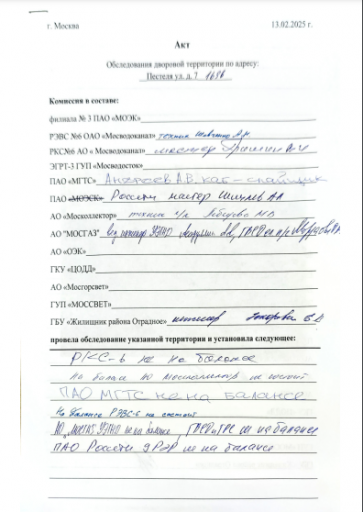 г. Москва 13.02.2025 г.
Акт
Обследования дворовой территории по адресу:
Пестеля ул. д. 7
Комиссия в составе:
филиала № 3 ПАО «МОЭК»
РЭВС №6 ОАО «Мосводоканал» техник
РКС№6 АО « Мосводоканал»
ЭГРТ-3 ГУП «Мосводосток»
ПАО «МГТС» А.В. каб-спайщик
ПАО «МОЭСК» Россети мастер
АО «Москоллектор» техник
АО "МОСГАЗ"
АО «ОЭК»
ГКУ «ЦОДД»
АО «Мосгорсвет»
ГУП «МОССВЕТ»
ГБУ «Жилищник района Отрадное» инженер
провела обследование указанной территории и установила следующее:
РКС-6 не на балансе
На балансе АО Москоллектор не состоит
ПАО МГТС не на балансе
На балансе РЭВС-6 не состоит
АО "МОСГАЗ" УЭТАО не на балансе не на балансе
ПАО Россети не на балансе